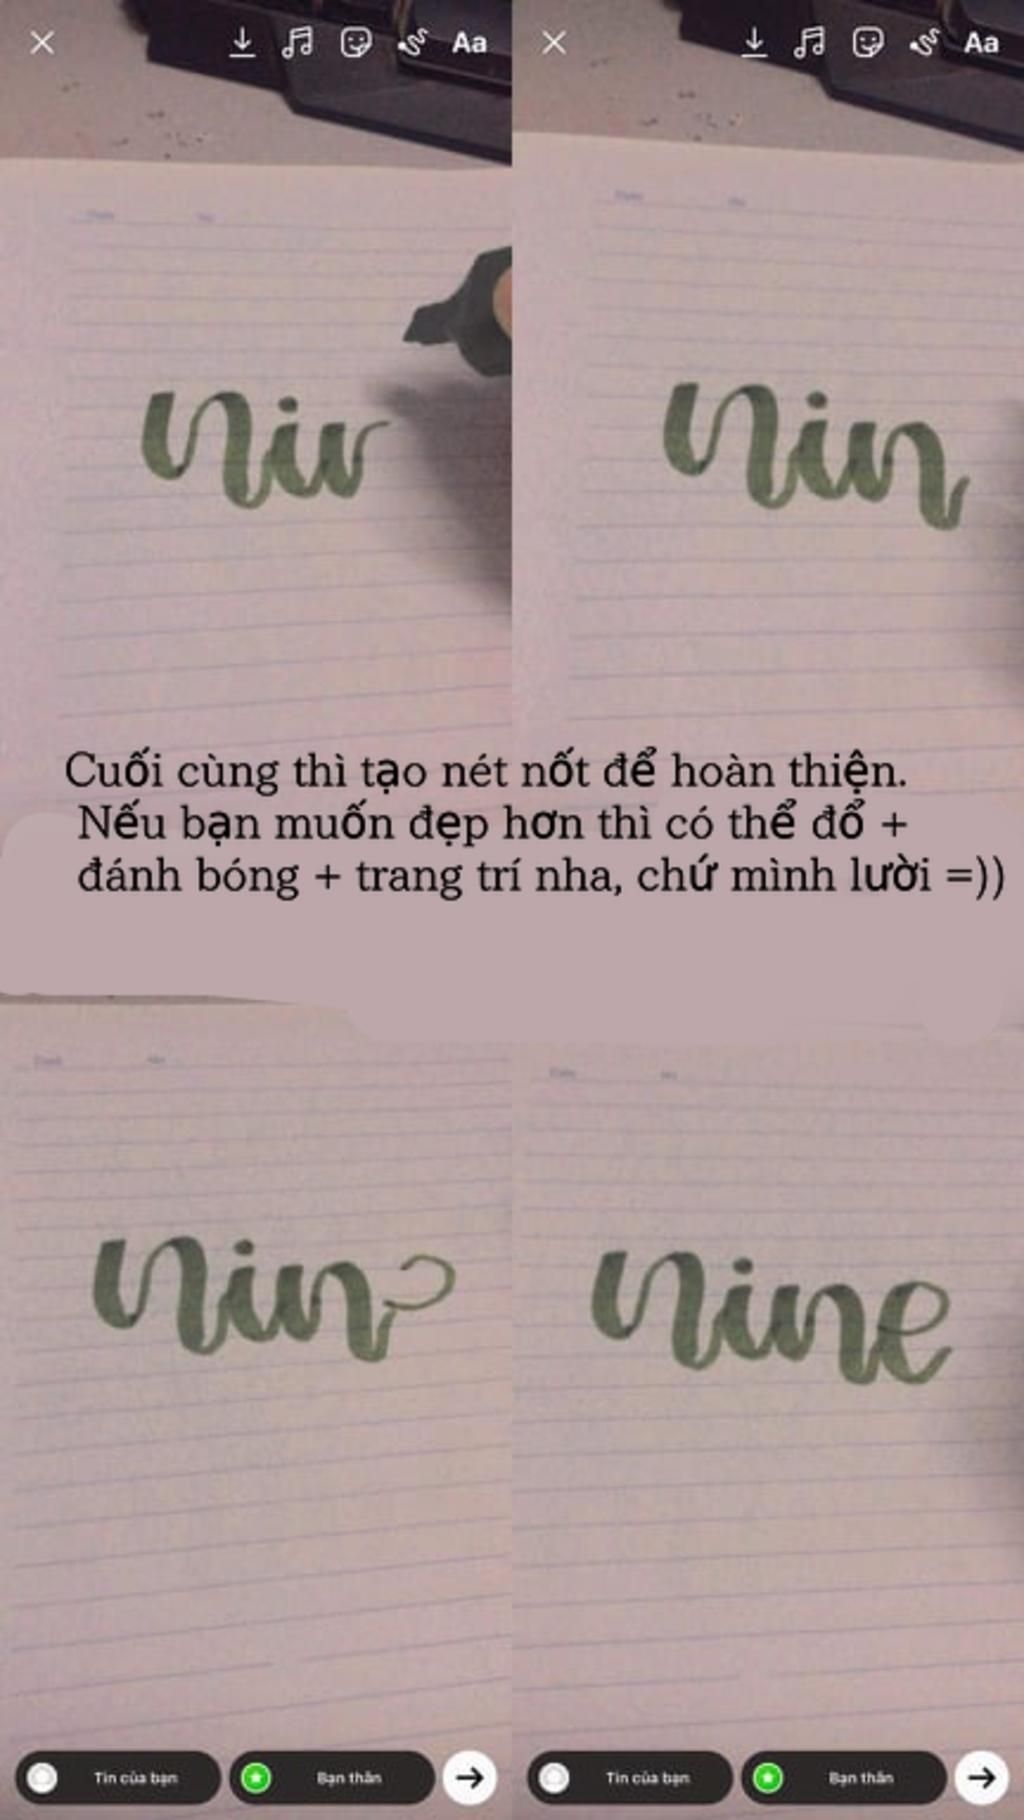 Aa
Aa
Niv
Nin
Cuối cùng thì tạo nét nốt để hoàn thiện.
Nếu bạn muốn đẹp hơn thì có thể đổ +
đánh bóng + trang trí nha, chứ mình lười =))
Nin
Nine
Tin của bạn
Bạn thân
Tin của bạn
Bạn thân